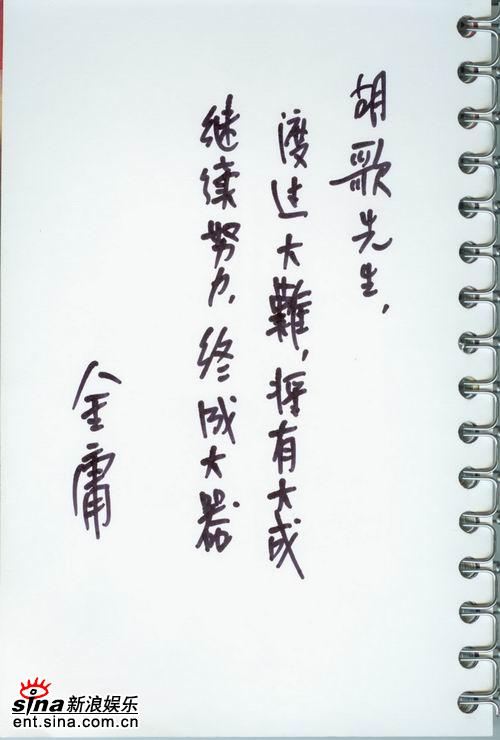 胡歌先生，
渡过大難，将有大成
继续努力，终成大器
金庸
sina新浪娱乐
ent.sina.com.cn